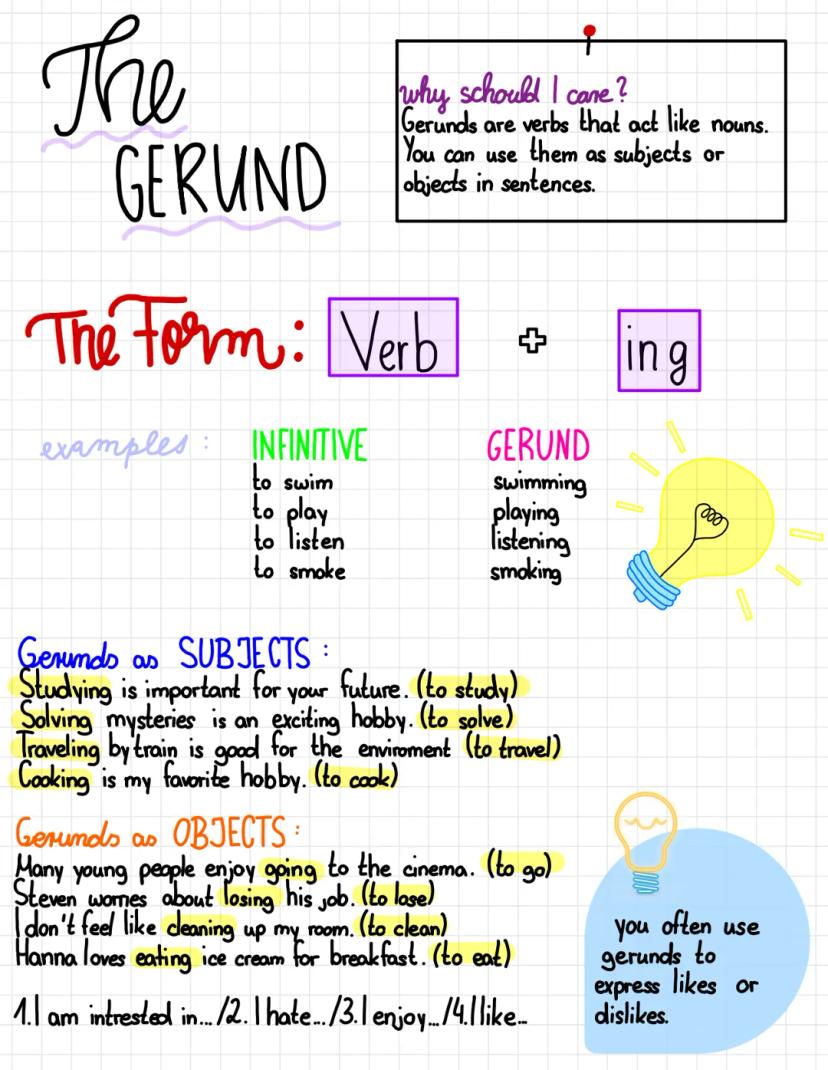 The
GERUND
why schould I care?
Gerunds are verbs that act like nouns.
You can use them as subjects or
objects in sentences.
The Form: Verb + ing
examples: INFINITIVE GERUND
to swim swimming
to play playing
to listen listening
to smoke smoking
Gerunds as SUBJECTS:
Studying is important for your future. (to study)
Solving mysteries is an exciting hobby. (to solve)
Traveling by train is good for the enviroment (to travel)
Cooking is my favorite hobby. (to cook)
Gerunds as OBJECTS:
Many young people enjoy going to the cinema. (to go)
Steven worries about losing his job. (to lose)
I don't feel like cleaning up my room. (to clean)
Hanna loves eating ice cream for breakfast. (to eat)
1. I am intrested in... /2. I hate... /3. I enjoy... /4. I like...
you often use
gerunds to
express likes or
dislikes.